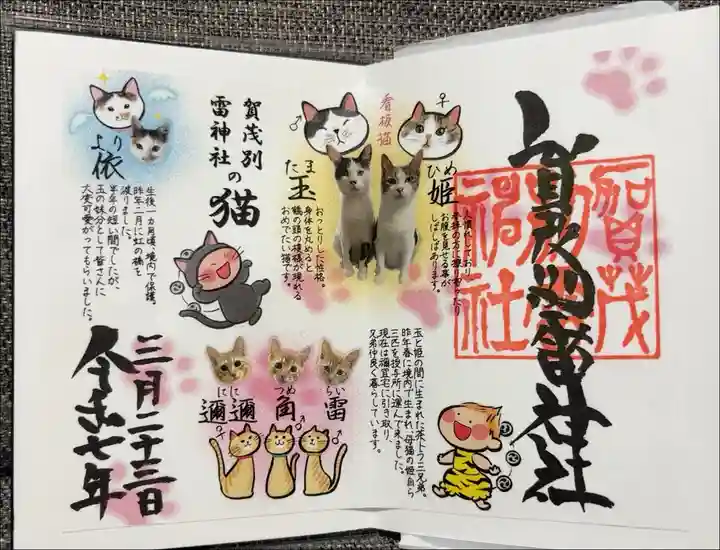 賀茂別雷神社
賀茂
別雷
神社
看板猫
♀
♂
ひめ
姫
人慣れしており
参拝の方に擦り寄ったり
お腹を見せる事が
しばしばあります。
たま
玉
おっとりした性格。
身体を丸めると
鶴の頭の模様が現れる
おめでたい猫です。
賀茂別
雷神社の
猫
より
依
生後一カ月頃、境内で保護。
昨年二月に虹の橋を
渡りました。
半年の短い間でしたが、
玉の妹分として皆さんに
大変可愛がってもらいました。
玉と姫の間に生まれた茶トラ三兄弟。
昨年春に境内で生まれ、母猫の姫自ら
三匹を授与所に運んで来ました。
現在は禰宜宅に引き取り、
兄弟仲良く暮らしています。
らい
雷
つめ
角
にに
彌彌
♂
♂
♀
令和七年
三月二十三日